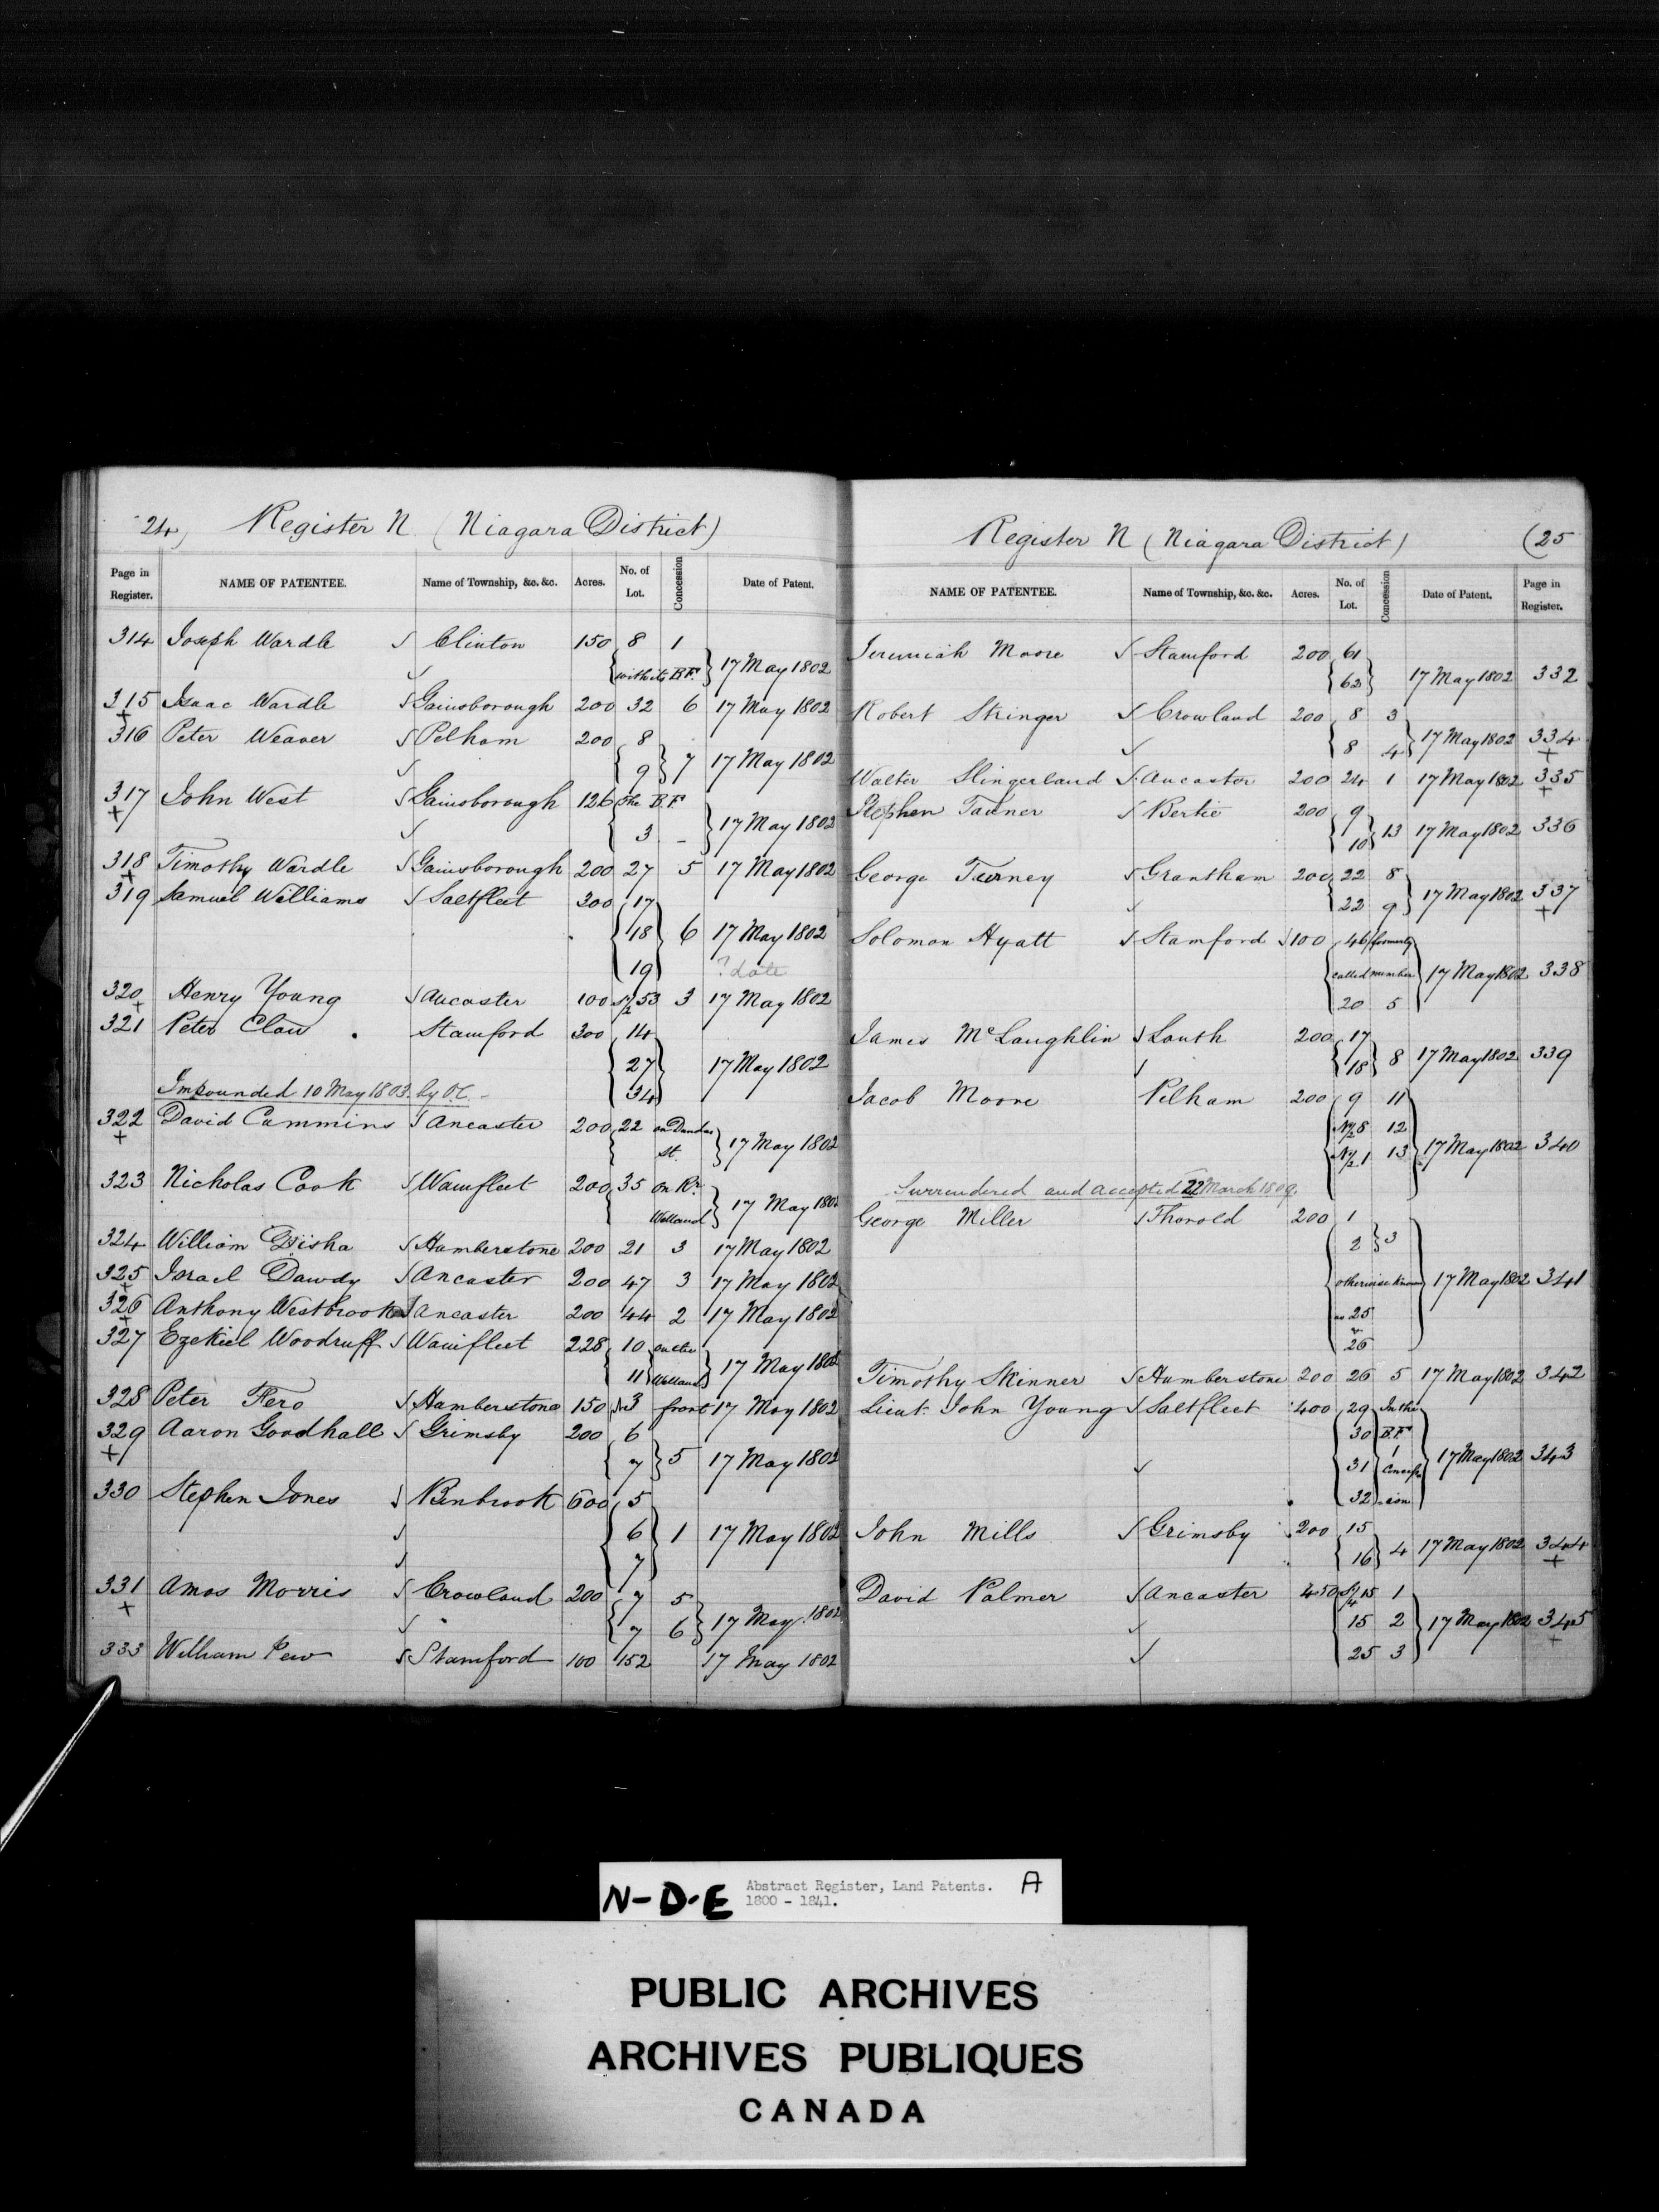 24) Register N (Niagara District)
Page in Register. NAME OF PATENTEE. Name of Township, &c. &c. Acres. No. of Lot. Concession Date of Patent.
314 Joseph Wardle Clinton 150 8 1
with its B.F. 17 May 1802
315 Isaac Wardle Gainsborough 200 32 6 17 May 1802
316 Peter Weaver Pelham 200 8
9 7 17 May 1802
317 John West Gainsborough 126 The B.F.
3 - 17 May 1802
318 Timothy Wardle Gainsborough 200 27 5 17 May 1802
319 Samuel Williams Saltfleet 300 17
18 6 17 May 1802
19 ? date
320 Henry Young Ancaster 100 53 3 17 May 1802
321 Peter Claw Stamford 300 14
27 17 May 1802
34
Impounded 10 May 1803 by O.C. -
322 David Cummins Ancaster 200 22 on Dundas
St. 17 May 1802
323 Nicholas Cook Wainfleet 200 35 on Rr.
Welland 17 May 1802
324 William Disha Humberstone 200 21 3 17 May 1802
325 Israel Dawdy Ancaster 200 47 3 17 May 1802
326 Anthony Westbrook Ancaster 200 44 2 17 May 1802
327 Ezekiel Woodruff Wainfleet 228 10 on the
11 Welland 17 May 1802
328 Peter Fero Humberstone 150 3 front 17 May 1802
329 Aaron Goodhall Grimsby 200 6
7 5 17 May 1802
330 Stephen Jones Binbrook 600 5
6 1 17 May 1802
7
331 Amos Morris Crowland 200 7 5
7 6 17 May 1802
333 William Pew Stamford 100 152 17 May 1802
Register N (Niagara District) (25
NAME OF PATENTEE. Name of Township, &c. &c. Acres. No. of Lot. Concession Date of Patent. Page in Register.
Jeremiah Moore Stamford 200 61
62 17 May 1802 332
Robert Stringer Crowland 200 8 3
8 4 17 May 1802 334
Walter Slingerland Ancaster 200 24 1 17 May 1802 335
Stephen Tanner Bertie 200 9
10 13 17 May 1802 336
George Turney Grantham 200 22 8
22 9 17 May 1802 337
Solomon Hyatt Stamford 100 46 formerly
called number 17 May 1802 338
20 5
James McLaughlin Louth 200 17
18 8 17 May 1802 339
Jacob Moore Pelham 200 9 11
N½ 8 12
N½ 1 13 17 May 1802 340
Surrendered and accepted 22 March 1809.
George Miller Thorold 200 1
2 3
otherwise known 17 May 1802 341
as 25
&
26
Timothy Skinner Humberstone 200 26 5 17 May 1802 342
Lieut. John Young Saltfleet 400 29 In the
30 B.F.
31 1 Conces 17 May 1802 343
32 sion
John Mills Grimsby 200 15
16 4 17 May 1802 344
David Palmer Ancaster 450 15 1
15 2 17 May 1802 345
25 3
N-D-E Abstract Register, Land Patents. A
1800 - 1841.
PUBLIC ARCHIVES
ARCHIVES PUBLIQUES
CANADA